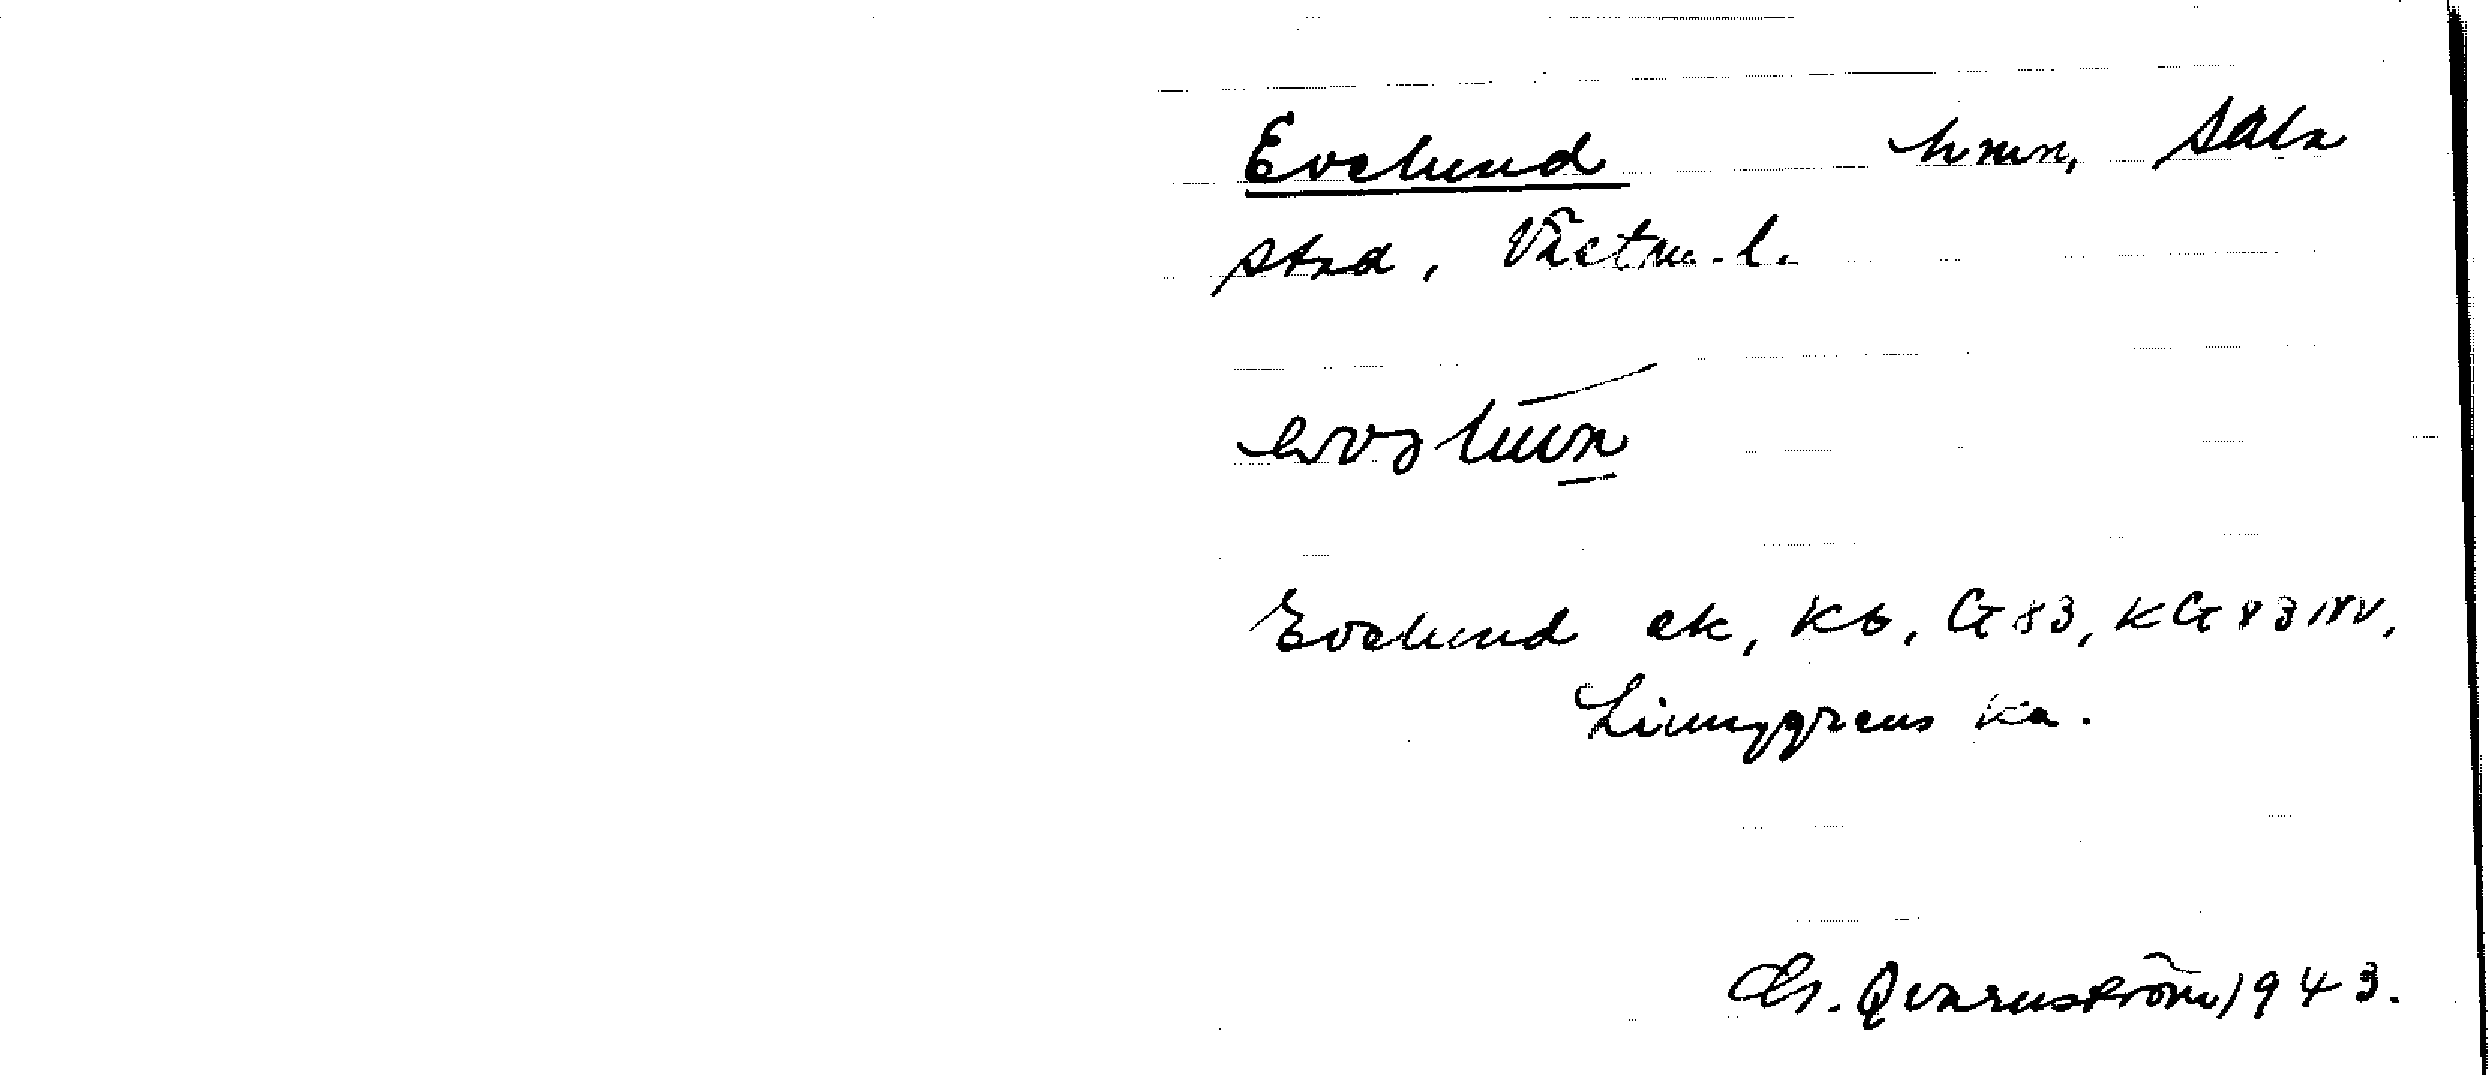 Evelund hmn, Sala
stad, Västm. l.
Evelund ek, Kb, G 83, KG 83 IXV,
Ljunggrens Ka.
Qvarnström 1943.